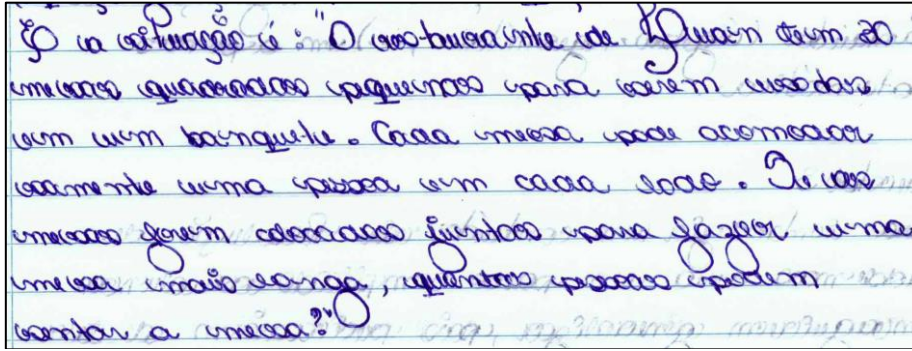 E a situação é: "O restaurante de Yuan tem 20
mesas quadradas pequenas para serem usadas
em um banquete. Cada mesa pode acomodar
somente uma pessoa em cada lado. Se as
mesas forem colocadas juntas para fazer uma
mesa mais longa, quantas pessoas podem
sentar a mesa?"